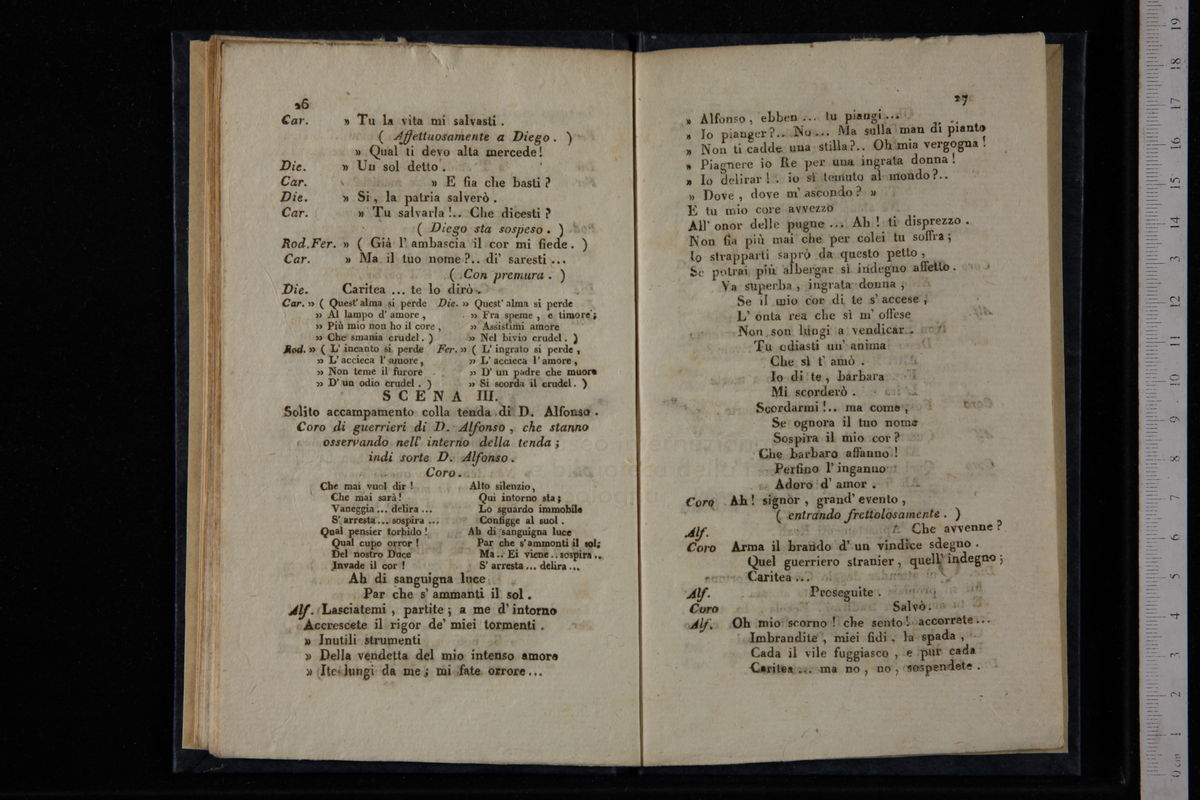 26
Car. » Tu la vita mi salvasti .
( Affettuosamente a Diego . )
» Qual ti devo alta mercede !
Die. » Un sol detto .
Car. » E fia che basti ?
Die. » Si , la patria salverò .
Car. » Tu salvarla !.. Che dicesti ?
( Diego sta sospeso . )
Rod.Fer. » ( Già l' ambascia il cor mi fiede . )
Car. » Ma il tuo nome ?.. di' saresti ...
( Con premura . )
Die. Caritea ... te lo dirò .
Car. » ( Quest' alma si perde Die. » Quest' alma si perde
» Al lampo d' amore , » Fra speme , e timore ;
» Più mio non ho il core , » Assistimi amore
» Che smania crudel . ) » Nel bivio crudel . )
Rod. » ( L' incanto si perde Fer. » ( L' ingrato si perde ,
» L' accieca l' amore , » L' accieca l' amore ,
» Non teme il furore » D' un padre che muore
» D' un odio crudel . ) » Si scorda il crudel . )
SCENA III.
Solito accampamento colla tenda di D. Alfonso .
Coro di guerrieri di D. Alfonso , che stanno
osservando nell' interno della tenda ;
indi sorte D. Alfonso .
Coro .
Che mai vuol dir ! Alto silenzio ,
Che mai sarà ! Qui intorno sta ;
Vaneggia ... delira ... Lo sguardo immobile
S' arresta ... sospira ... Configge al suol .
Qual pensier torbido ! Ah di sanguigna luce
Qual cupo orror ! Par che s' ammonti il sol ;
Del nostro Duce Ma .. Ei viene .. sospira ..
Invade il cor ! S' arresta ... delira ...
Ah di sanguigna luce
Par che s' ammanti il sol .
Alf. Lasciatemi , partite ; a me d' intorno
Accrescete il rigor de' miei tormenti .
» Inutili strumenti
» Della vendetta del mio intenso amore
» Ite lungi da me ; mi fate orrore ...
27
» Alfonso , ebben ... tu piangi ...
» Io pianger ?.. No ... Ma sulla man di pianto
» Non ti cadde una stilla ?.. Oh mia vergogna !
» Piagnere io Re per una ingrata donna !
» Io delirar ! . io sì temuto al mondo ?..
» Dove , dove m' ascondo ? »
E tu mio core avvezzo
All' onor delle pugne ... Ah ! ti disprezzo .
Non fia più mai che per colei tu soffra ;
Io strapparti saprò da questo petto ,
Se potrai più albergar sì indegno affetto .
Va superba , ingrata donna ,
Se il mio cor di te s' accese ,
L' onta rea che sì m' offese
Non son lungi a vendicar .
Tu odiasti un' anima
Che sì t' amò .
Io di te , barbara
Mi scorderò .
Scordarmi !.. ma come ,
Se ognora il tuo nome
Sospira il mio cor ?
Che barbaro affanno !
Perfino l' inganno
Adoro d' amor .
Coro Ah ! signor , grand' evento ,
( entrando frettolosamente . )
Alf. Che avvenne ?
Coro Arma il brando d' un vindice sdegno .
Quel guerriero stranier , quell' indegno ;
Caritea ...
Alf. Proseguite .
Coro Salvò .
Alf. Oh mio scorno ! che sento ! accorrete ...
Imbrandite , miei fidi , la spada ,
Cada il vile fuggiasco , e pur cada
Caritea ... ma no , no , sospendete .
0 cm 1 2 3 4 5 6 7 8 9 10 11 12 13 14 15 16 17 18 19